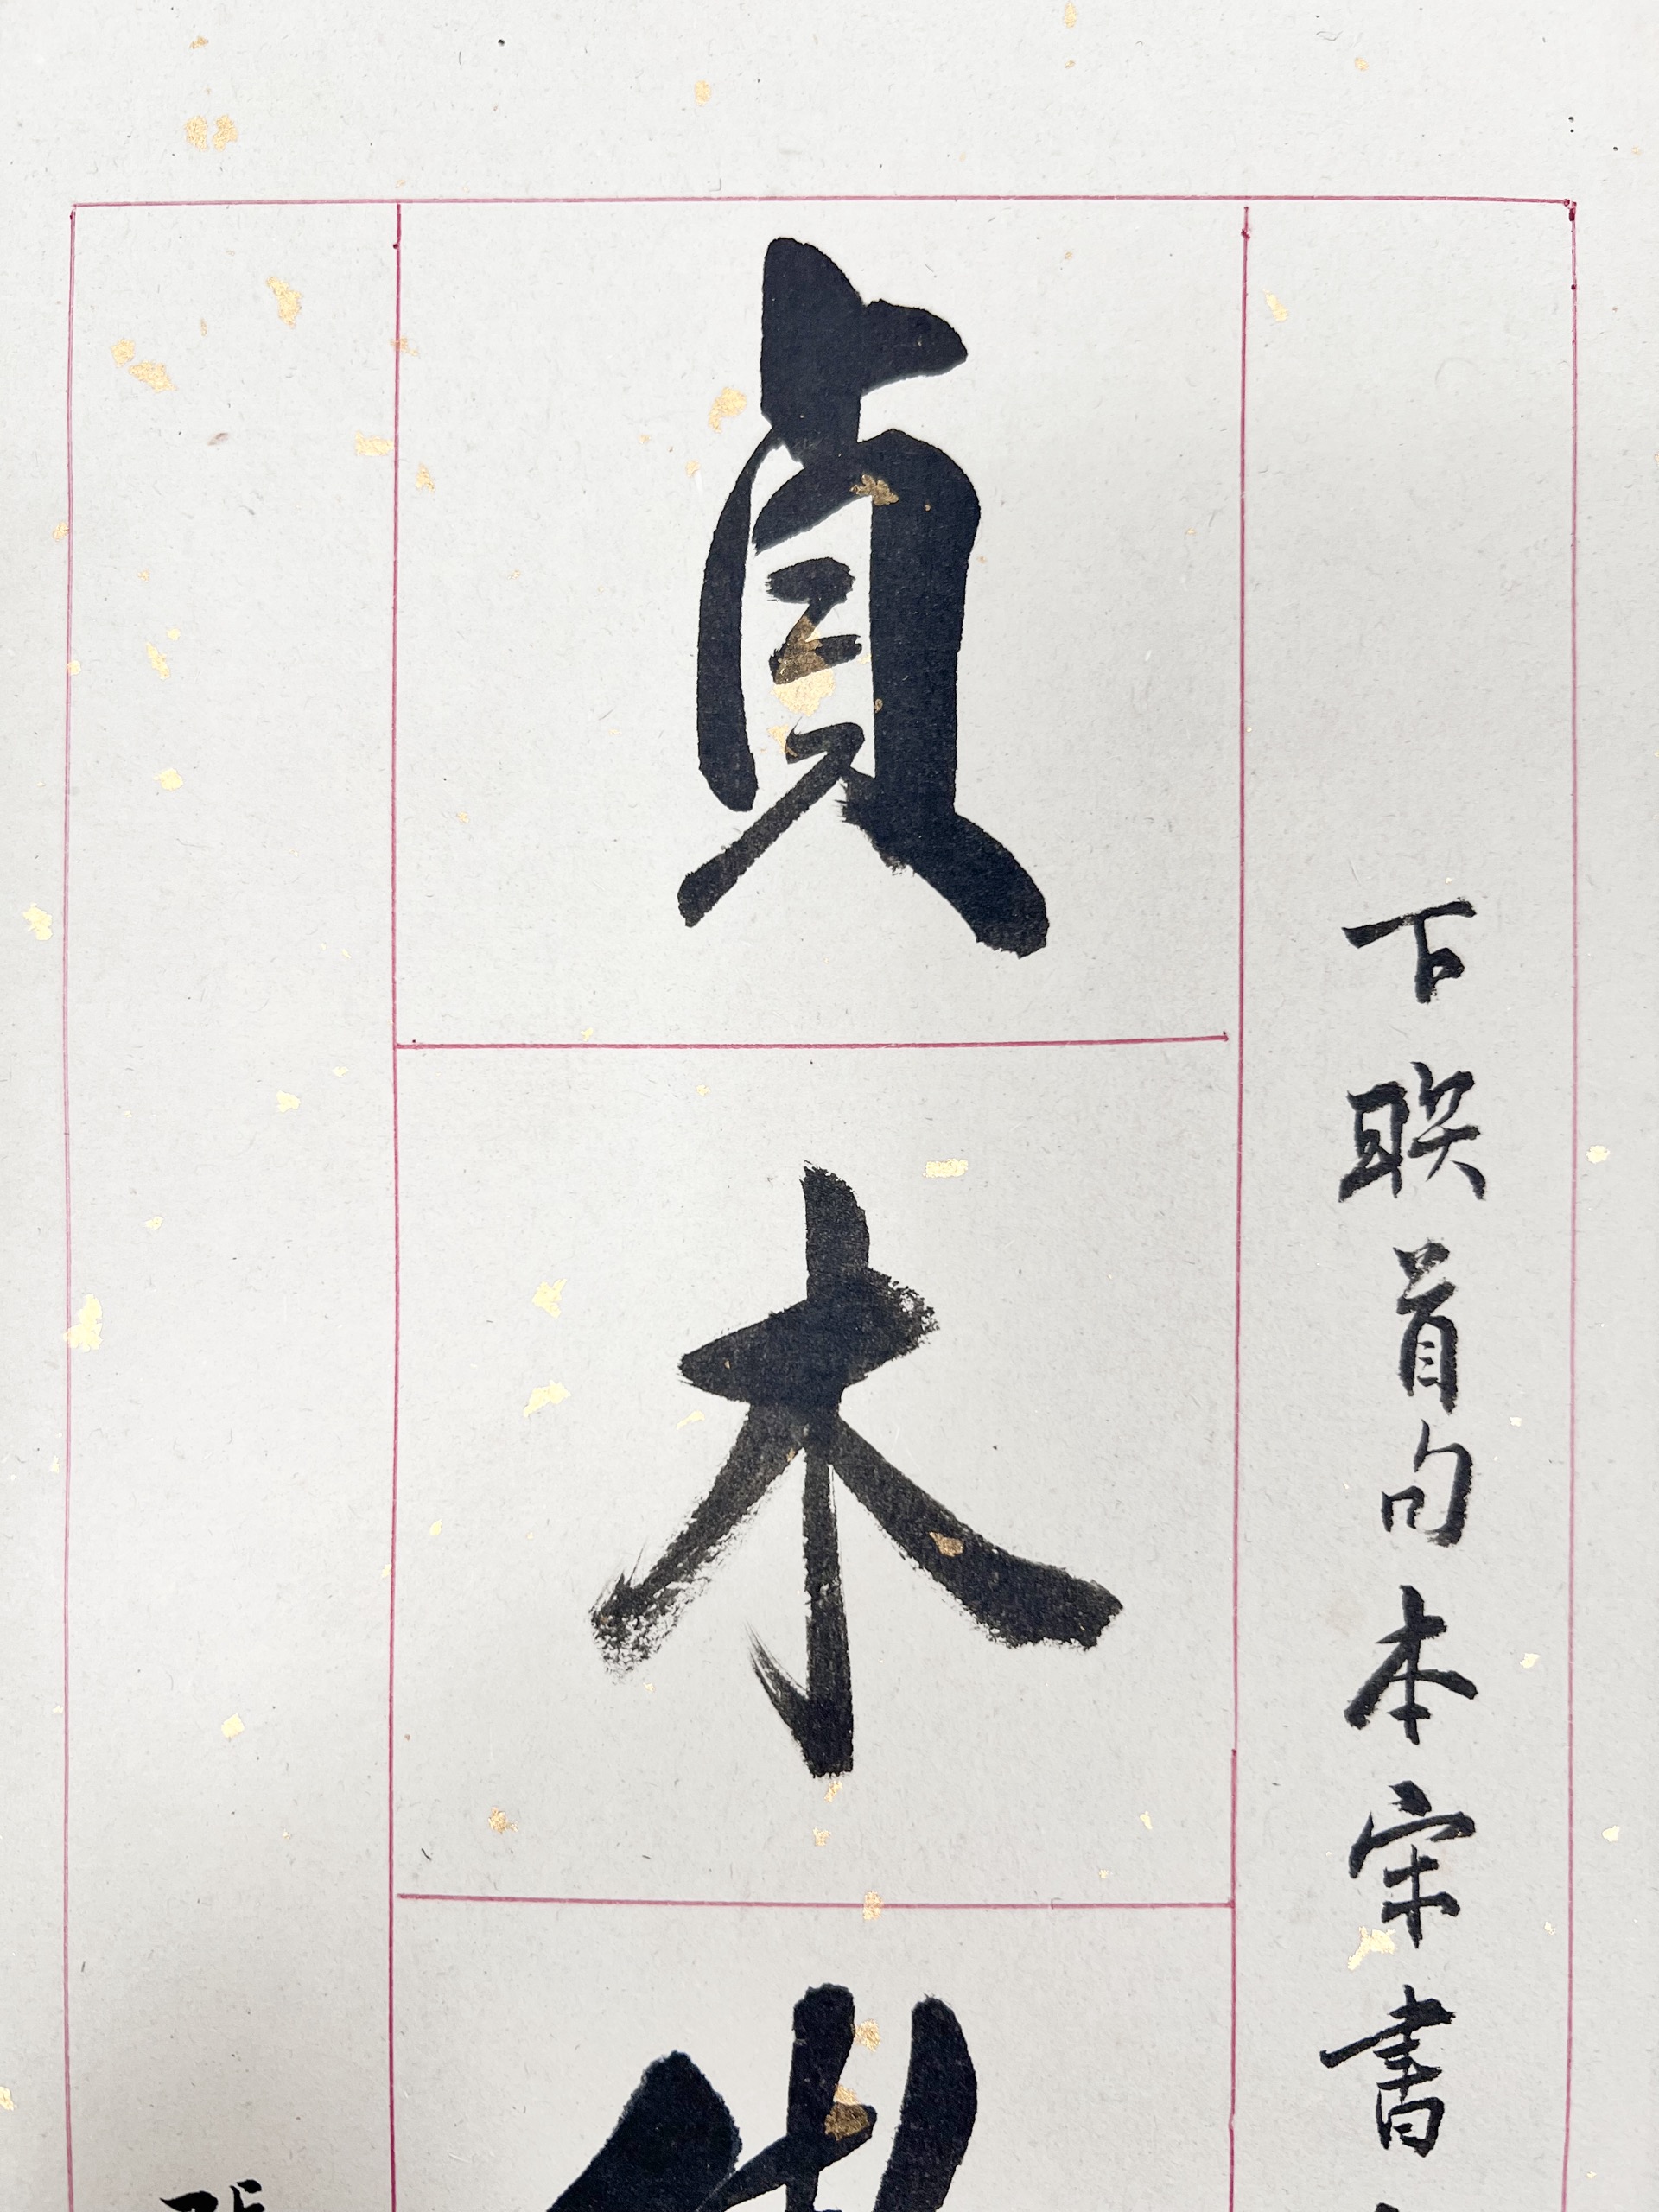 下联首句本宋書
貞木